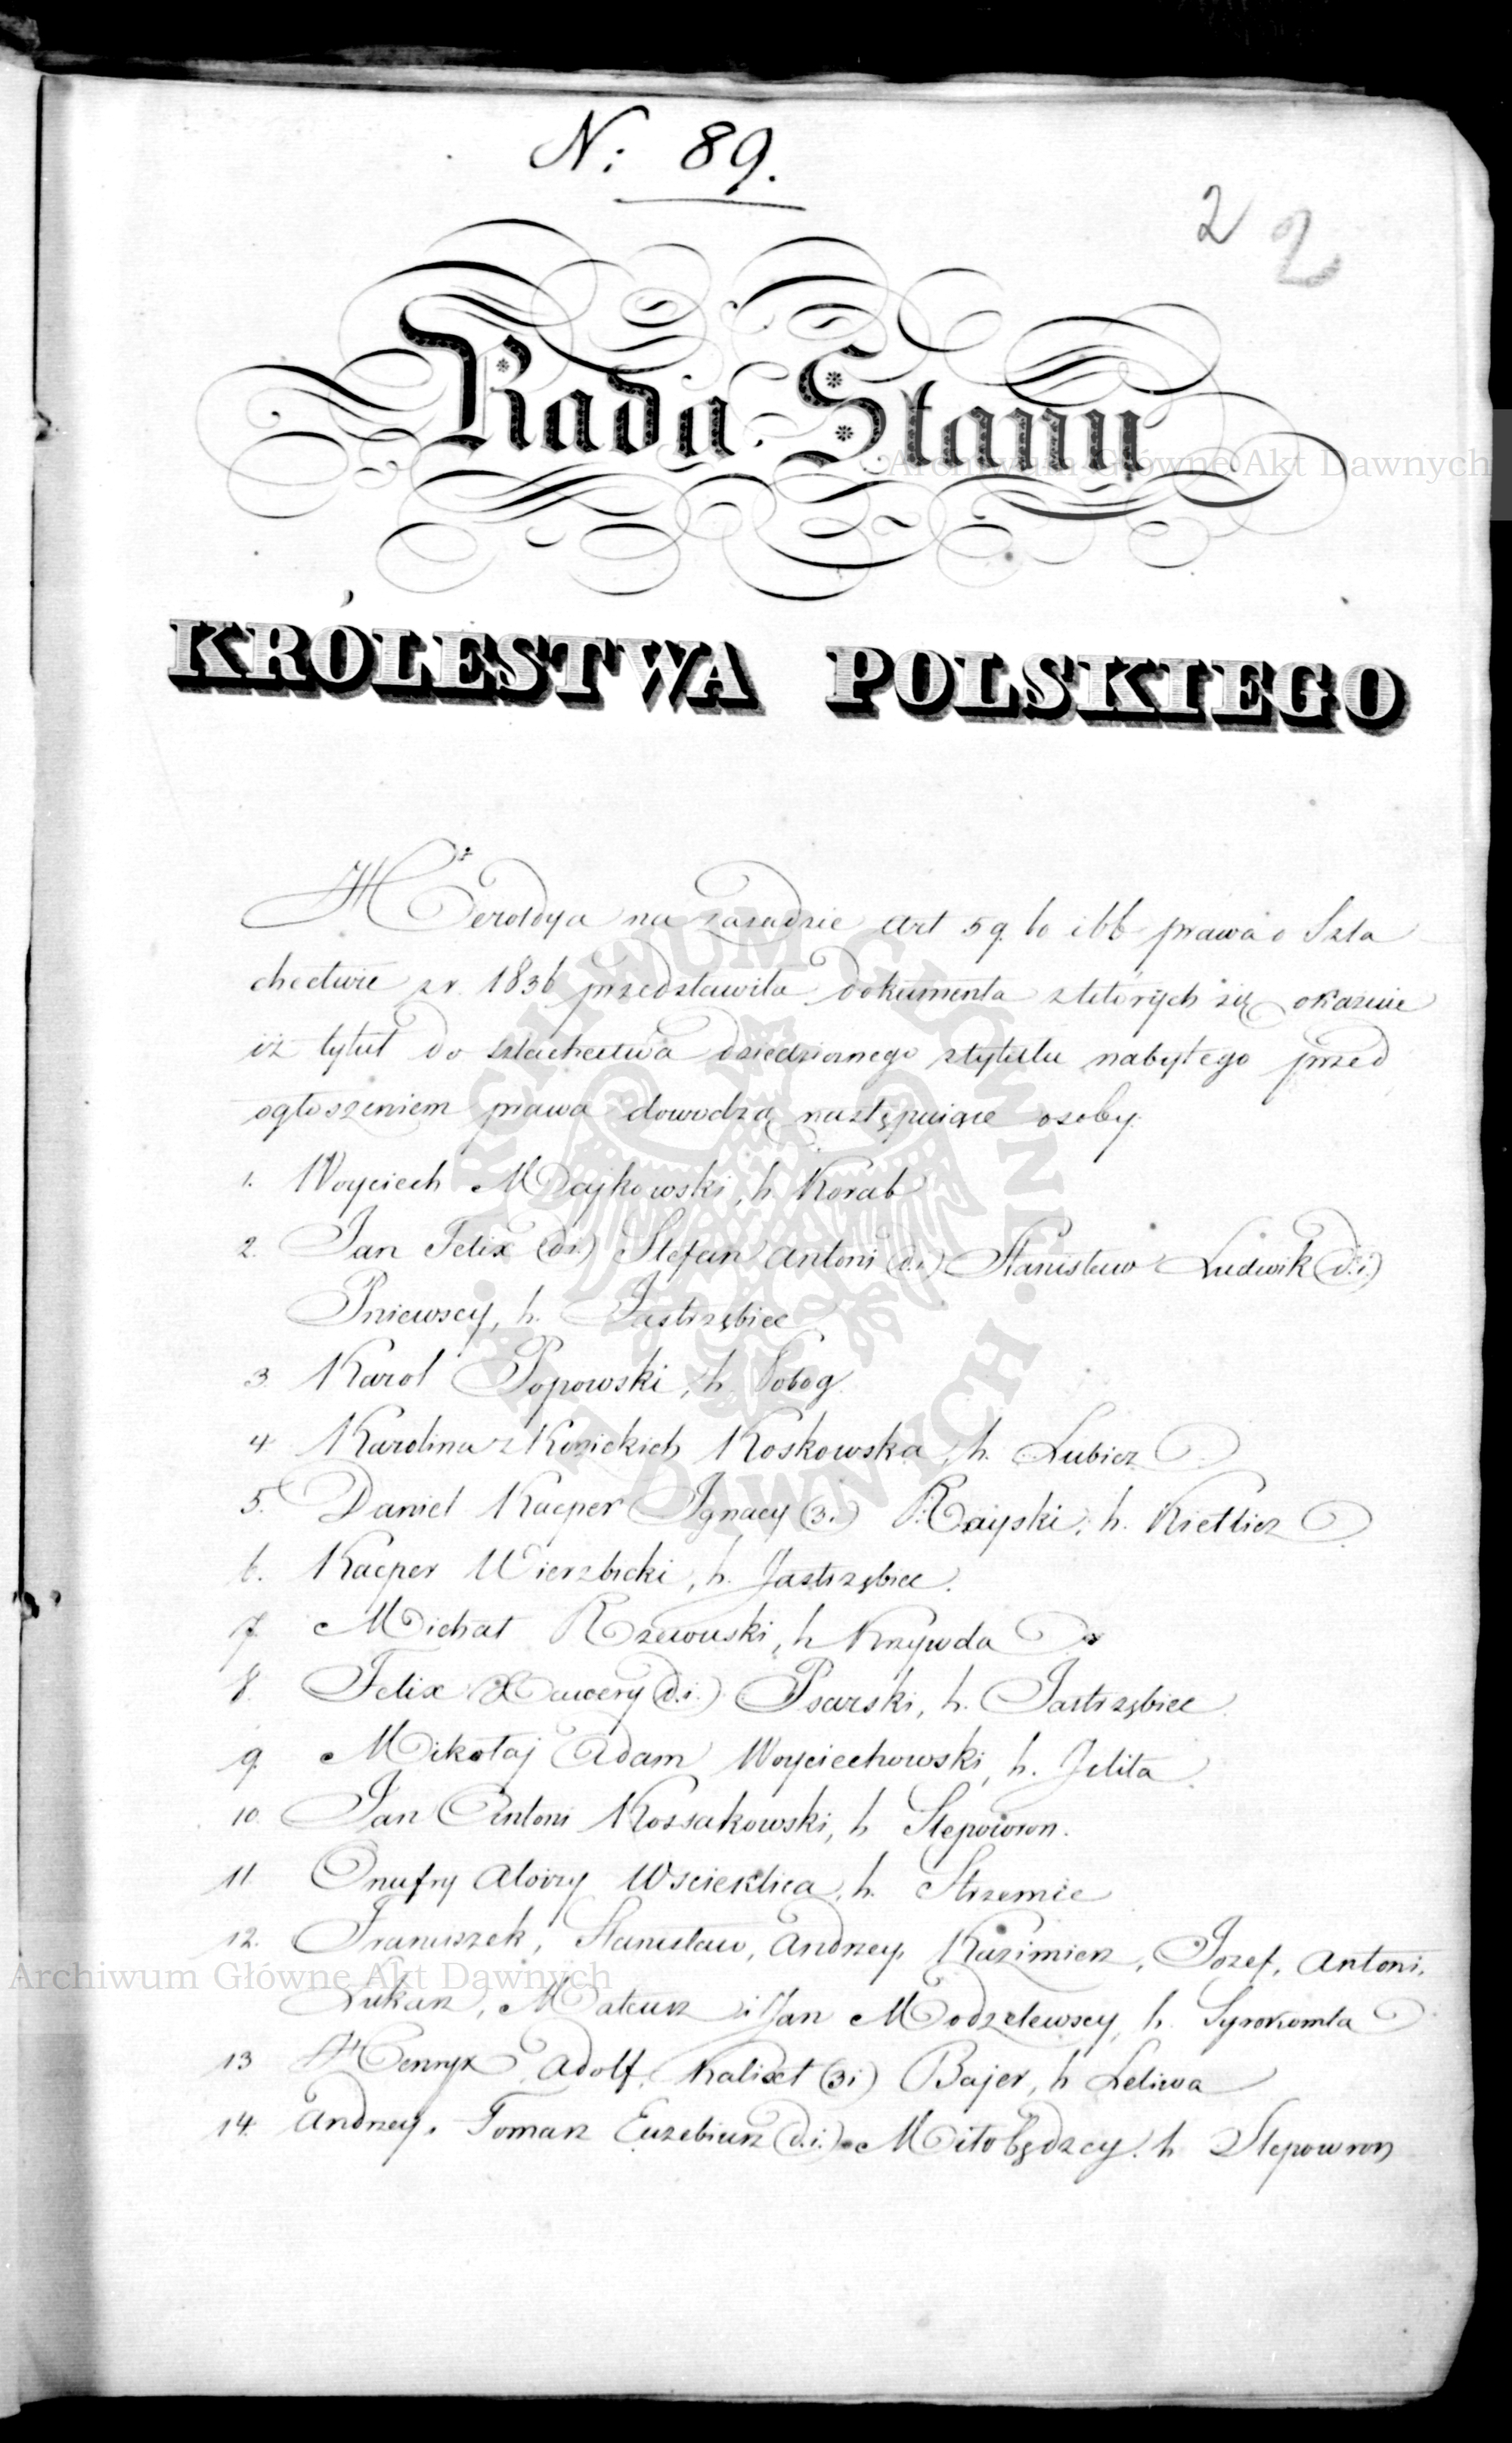 N: 89.
2 2
Rada Stanu
KRÓLESTWA POLSKIEGO
Heroldya na zasadzie Art 59. 60 i 66 prawa o Szla
chectwie z r. 1836 przedstawiła dokumenta z których się okazuie
iż tytuł do szlachectwa dziedzicznego z tytułu nabytego przed
ogłoszeniem prawa dowodzą następuiące osoby.
1. Woyciech Majkowski, h. Korab
2. Jan Felix (d.i.) Stefan Antoni (d.i.) Stanisław Ludwik (d.i.)
Pniewscy, h. Jastrzębiec
3. Karol Popowski, h. Pobog.
4 Karolina z Kozickich Koskowska, h. Lubicz
5. Daniel Kacper Ignacy (3.i.) Rayski, h. Kietlicz
6. Kacper Wierzbicki, h. Jastrzębiec.
7. Michał Rzewuski, h Krzywda
8. Felix Xawery (d.i.) Psarski, h. Jastrzębiec.
9. Mikołaj Adam Woyciechowski, h. Jelita.
10. Jan Antoni Kossakowski, h Slepowron.
11. Onufry Aloizy Wscieklica, h. Strzemie
12. Franciszek, Stanisław, Andrzey, Kazimierz, Jozef, Antoni,
Łukasz, Mateusz i Jan Modzelewscy, h. Syrokomla
13 Henryk, Adolf, Kalixt (3i) Bajer, h Leliwa
14. Andrzey, Tomasz Euzebiusz (d.i.) Miłobędzcy. h Slepowron
Archiwum Główne Akt Dawnych
Archiwum Główne Akt Dawnych
ARCHIWUM GŁÓWNE · AKT DAWNYCH ·